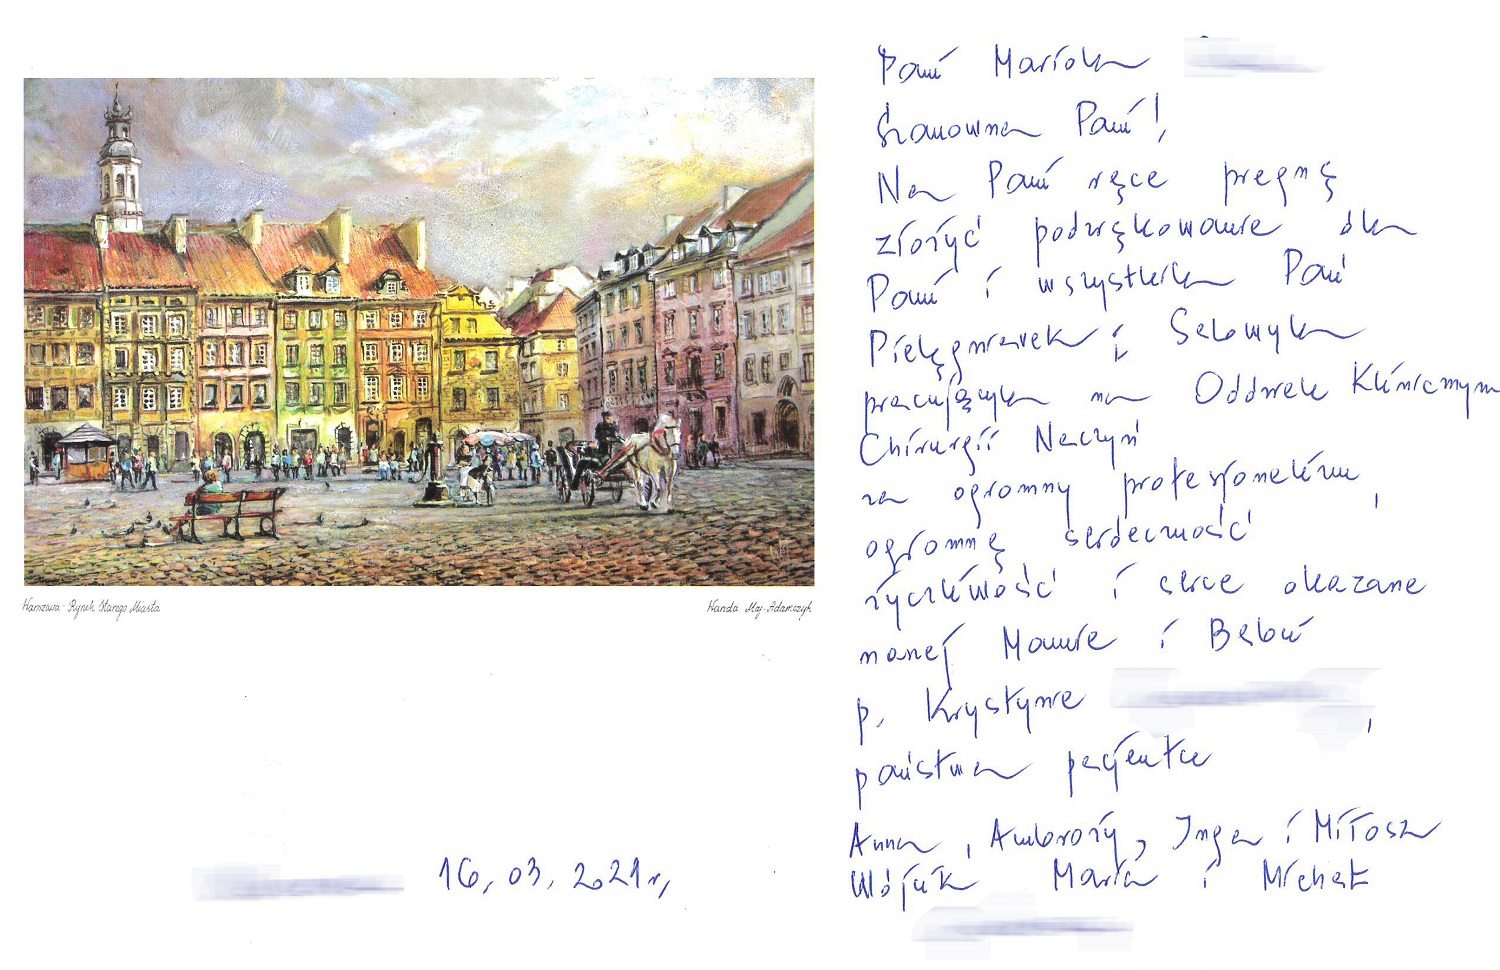 Warszawa - Rynek Starego Miasta
Wanda Maj-Adamczyk
16, 03, 2021r,
Pani Mariola
Szanowna Pani!
Na Pani ręce pragnę
złożyć podziękowanie dla
Pani i wszystkich Pań
Pielęgniarek i Salowych
pracujących na Oddziale Klinicznym
Chirurgii Naczyń
za ogromny profesjonalizm,
ogromną serdeczność
życzliwość i serce okazane
naszej Mamie i Babci
p. Krystynie
państwa pacjentce
Anna, Ambroży, Inga i Miłosz
Wójcik Maria i Michał